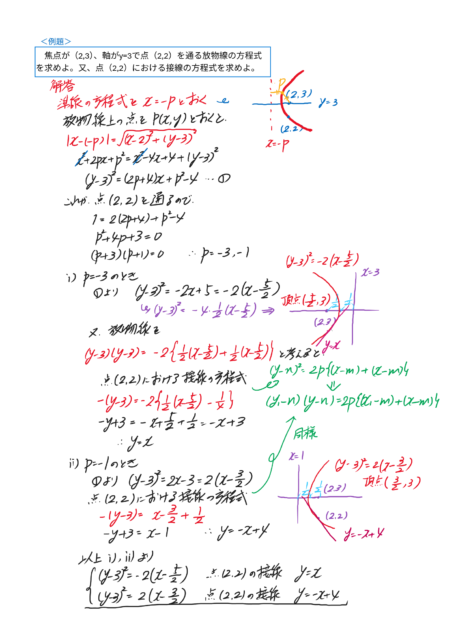 ＜例題＞
焦点が（2,3）、軸がy=3で点（2,2）を通る放物線の方程式
を求めよ。又、点（2,2）における接線の方程式を求めよ。
解答
準線の方程式を x=-pとおく
放物線上の点を P(x,y)とおくと
|x-(-p)|=√(x-2)²+(y-3)²
x²+2px+p²=x²-4x+4+(y-3)²
(y-3)²=(2p+4)x+p²-4 …①
これが 点(2,2)を通るので
1=2(2p+4)+p²-4
p²+4p+3=0
(p+3)(p+1)=0 ∴p=-3,-1
P
(2,3)
y=3
(2,2)
x=-p
i) p=-3のとき
①より (y-3)²=-2x+5=-2(x-5/2)
(y-3)²=-4·1/2(x-5/2) ⇒
又、放物線を
(y-3)(y-3)=-2{1/2(x-5/2)+1/2(x-5/2)}と考えると
点(2,2)における接線の方程式
-(y-3)=-2{1/2(x-5/2)-1/4}
-y+3=-x+5/2+1/2=-x+3
∴y=x
(y-3)²=-2(x-5/2)
x=3
頂点(5/2,3)
1/2 1/2
(2,3)
y=x
(y-n)²=2p{(x-m)+(x-m)}
⇓
(y₁-n)(y-n)=2p{(x₁-m)+(x-m)}
同様
ii) p=-1のとき
①より (y-3)²=2x-3=2(x-3/2)
点(2,2)における接線の方程式
-(y-3)=x-3/2+1/2
-y+3=x-1 ∴y=-x+4
x=1
(y-3)²=2(x-3/2)
頂点(3/2,3)
1/2 1/2 (2,3)
(2,2)
y=-x+4
以上 i),ii)より
(y-3)²=-2(x-5/2) 点(2,2)の接線 y=x
(y-3)²=2(x-3/2) 点(2,2)の接線 y=-x+4